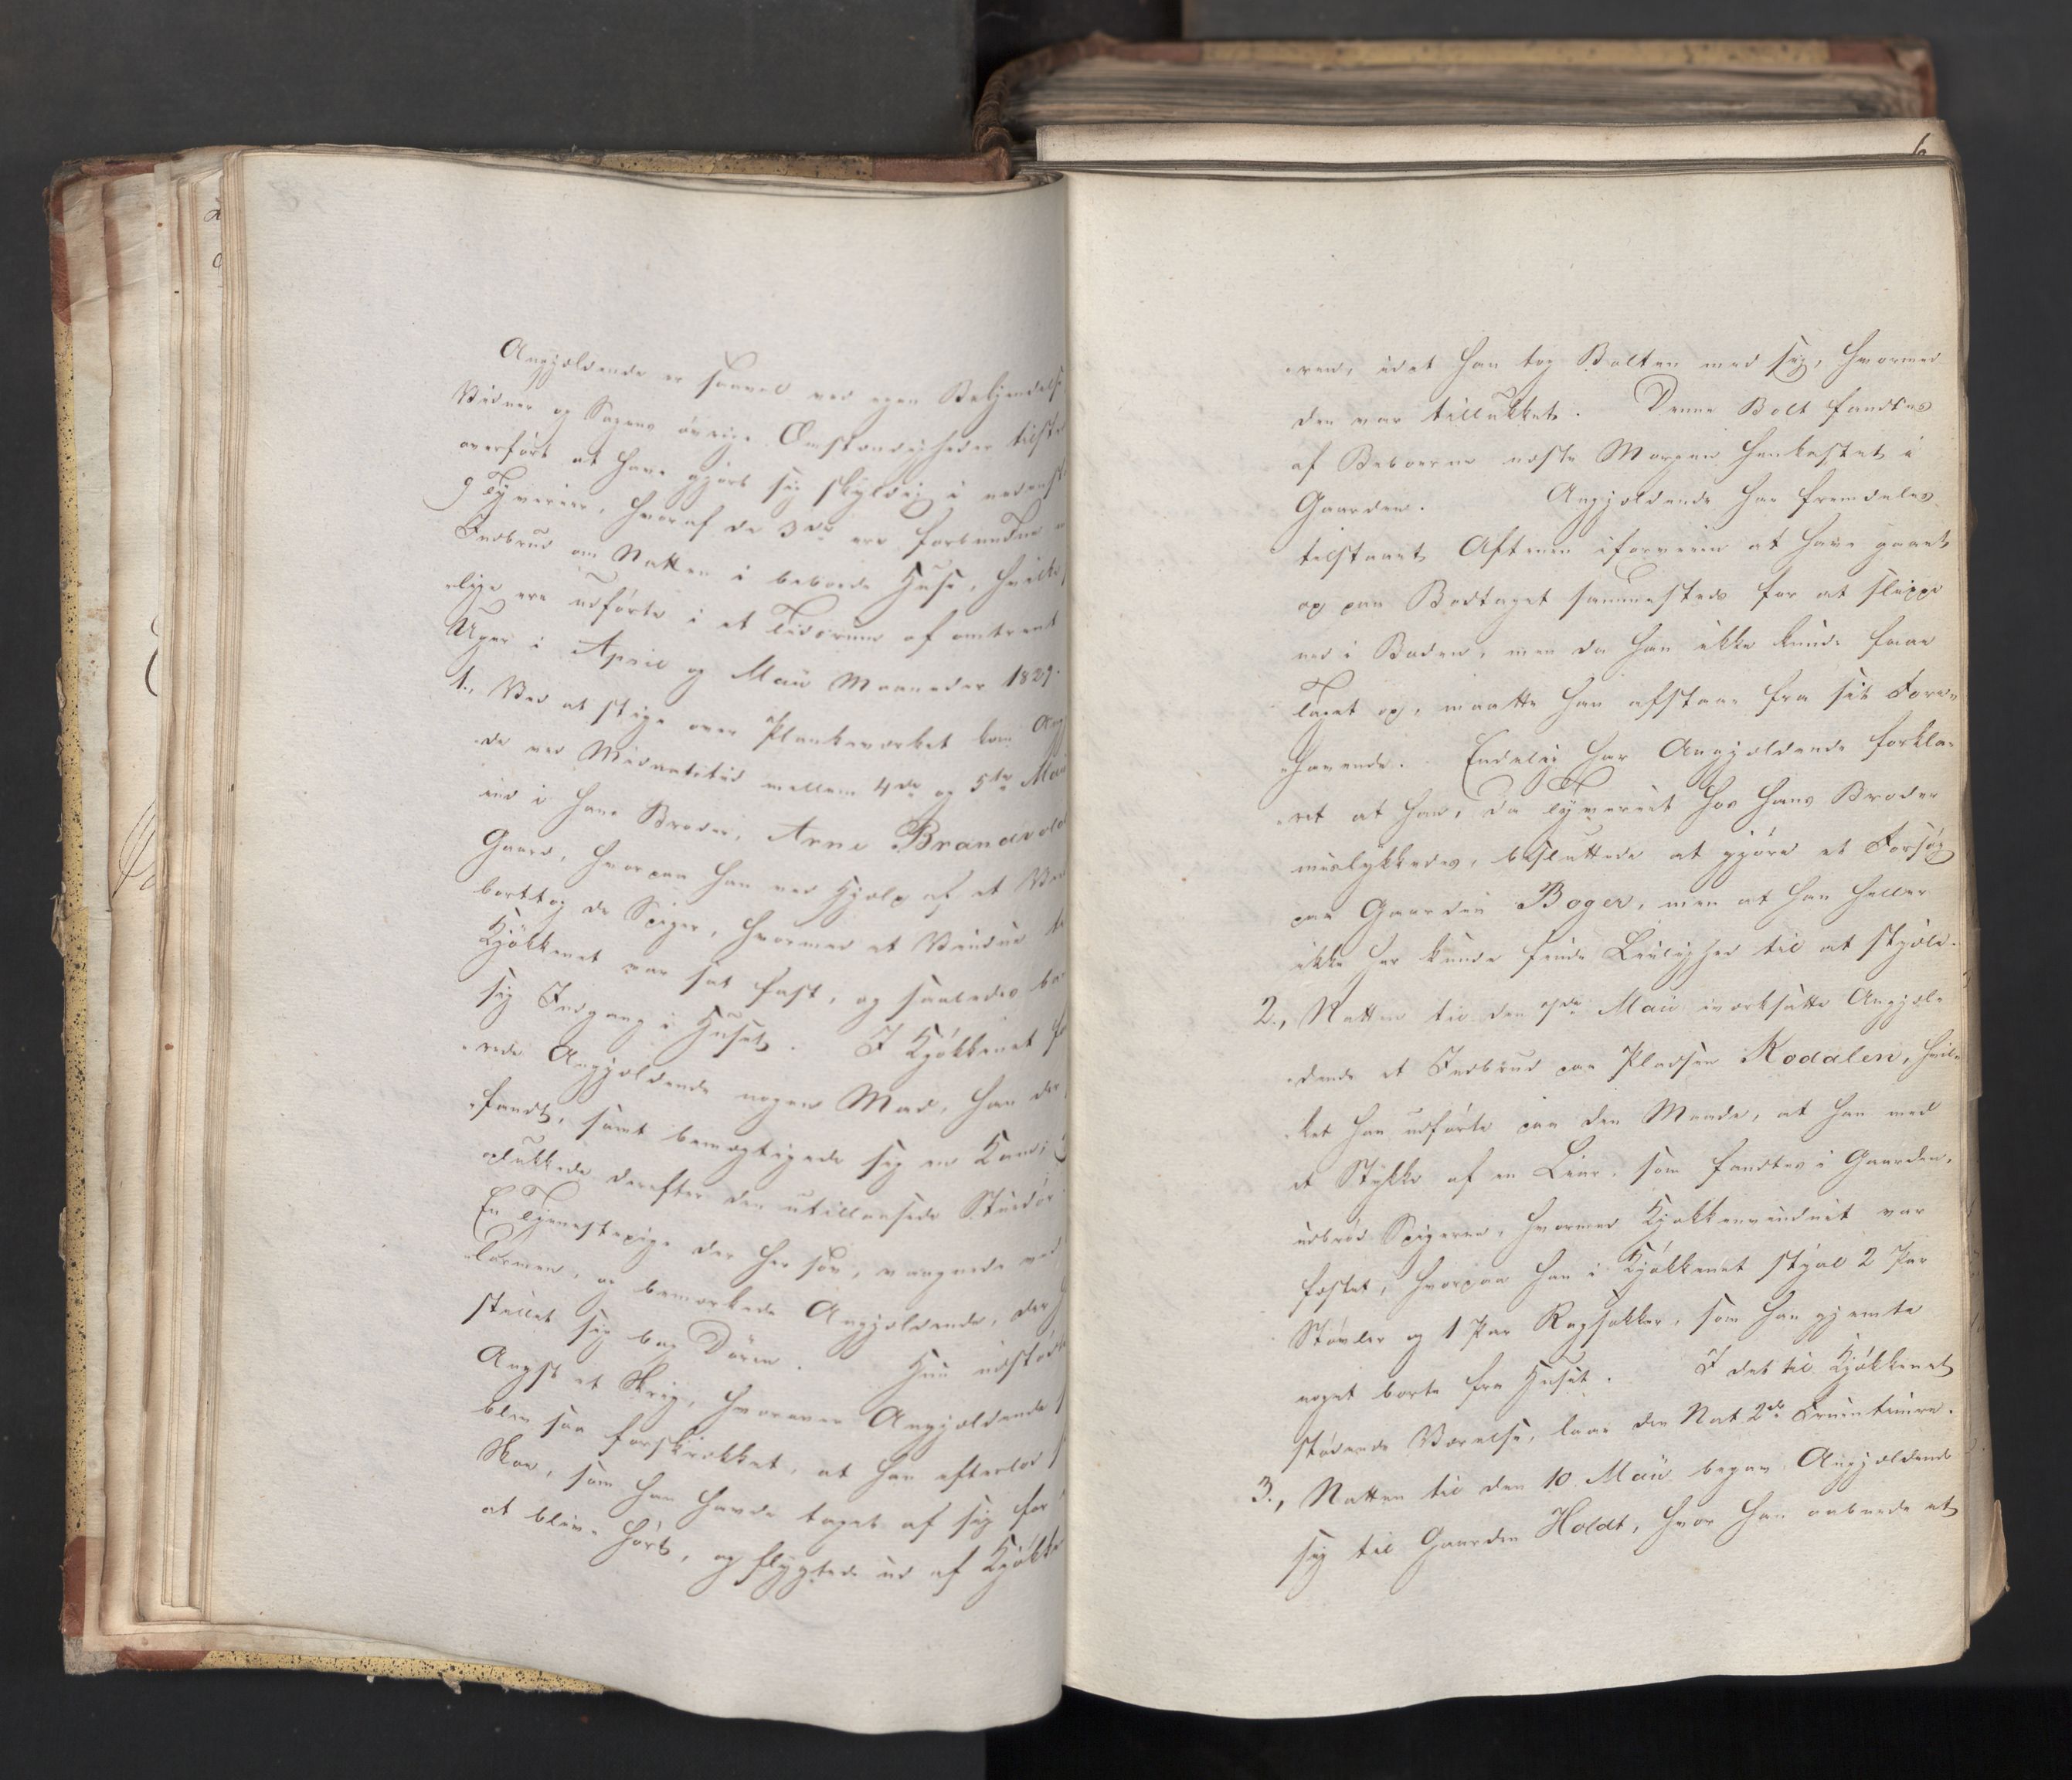 Angjældende er saavel ved egen Bekjendelse
Vidner og Sagens øvrige Omstændigheder tilst
overført at have gjort sig skyldig i nedenst
9 Tyverier, hvoraf de 3de ere forbundne
Indbrud om Natten i beboede Huse, hvilke
-lige ere udførte i et Tidsrum af omtrent
Uger i April og Maii Maaneder 1829.
1., Ved at stige over Plankeværket kom Ang
-de ved Midnatstid mellem 4de og 5te Maii
ind i hans Broder, Arne Brandvold
Gaard, hvorpaa han ved Hjælp af et
borttog de Spiger, hvormed et Vindue
Kjøkkenet var sat fast, og saaledes
sig Indgang i Huset. I Kjøkkenet
-rede Angjældende nogen Mad, han der
-fandt, samt bemægtigede sig en
oplukkede derefter den utillaasede Stuedør
En Tjenestepige der her sov, vaagnede ved
Larmen, og bemærkede Angjældende, der
stillet sig bag Døren. Hun udstødte
Angst et Skrig, hvorover Angjældende
blev saa forskrækket, at han efterlod
Skoe, som han havde taget af sig for
at blive hørt, og flygtede ud af Kjøkke
6
-ren, idet han tog Bolten med sig, hvormed
den var tillukket. Denne Bolt fandtes
af Beboerne næste Morgen henkastet i
Gaarden. Angjældende har fremdeles
tilstaaet Aftenen iforveien at have gaaet
op paa Bodtaget sammesteds for at slippe
ned i Boden, men da han ikke kunde faae
Taget op, maatte han afstaae fra sit Fore-
-havende. Endelig har Angjældende forkla-
-ret at han, da Tyveriet hos hans Broder
mislykkedes, besluttede at gjøre et Forsøg
paa Gaarden Boger, men at han heller
ikke her kunde finde Leilighed til at stjæle.
2., Natten til den 7de Maii iværksatte Angjæl-
-dende et Indbrud paa Pladsen Rodalen, hvil-
-ket han udførte paa den Maade, at han med
et Stykke af en Liae, som fandtes i Gaarden,
udbrød Spigeren, hvormed Kjøkkenvinduet var
fæstet, hvorpaa han i Kjøkkenet stjal 2 Par
Støvler og 1 Par Ragsokker, som han gjemte
noget borte fra Huset. I det til Kjøkkenet
stødende Værelse, laae den Nat 2de Fruentimre.
3., Natten til den 10 Maii begav Angjældende
sig til Gaarden Holdt, hvor han aabnede et